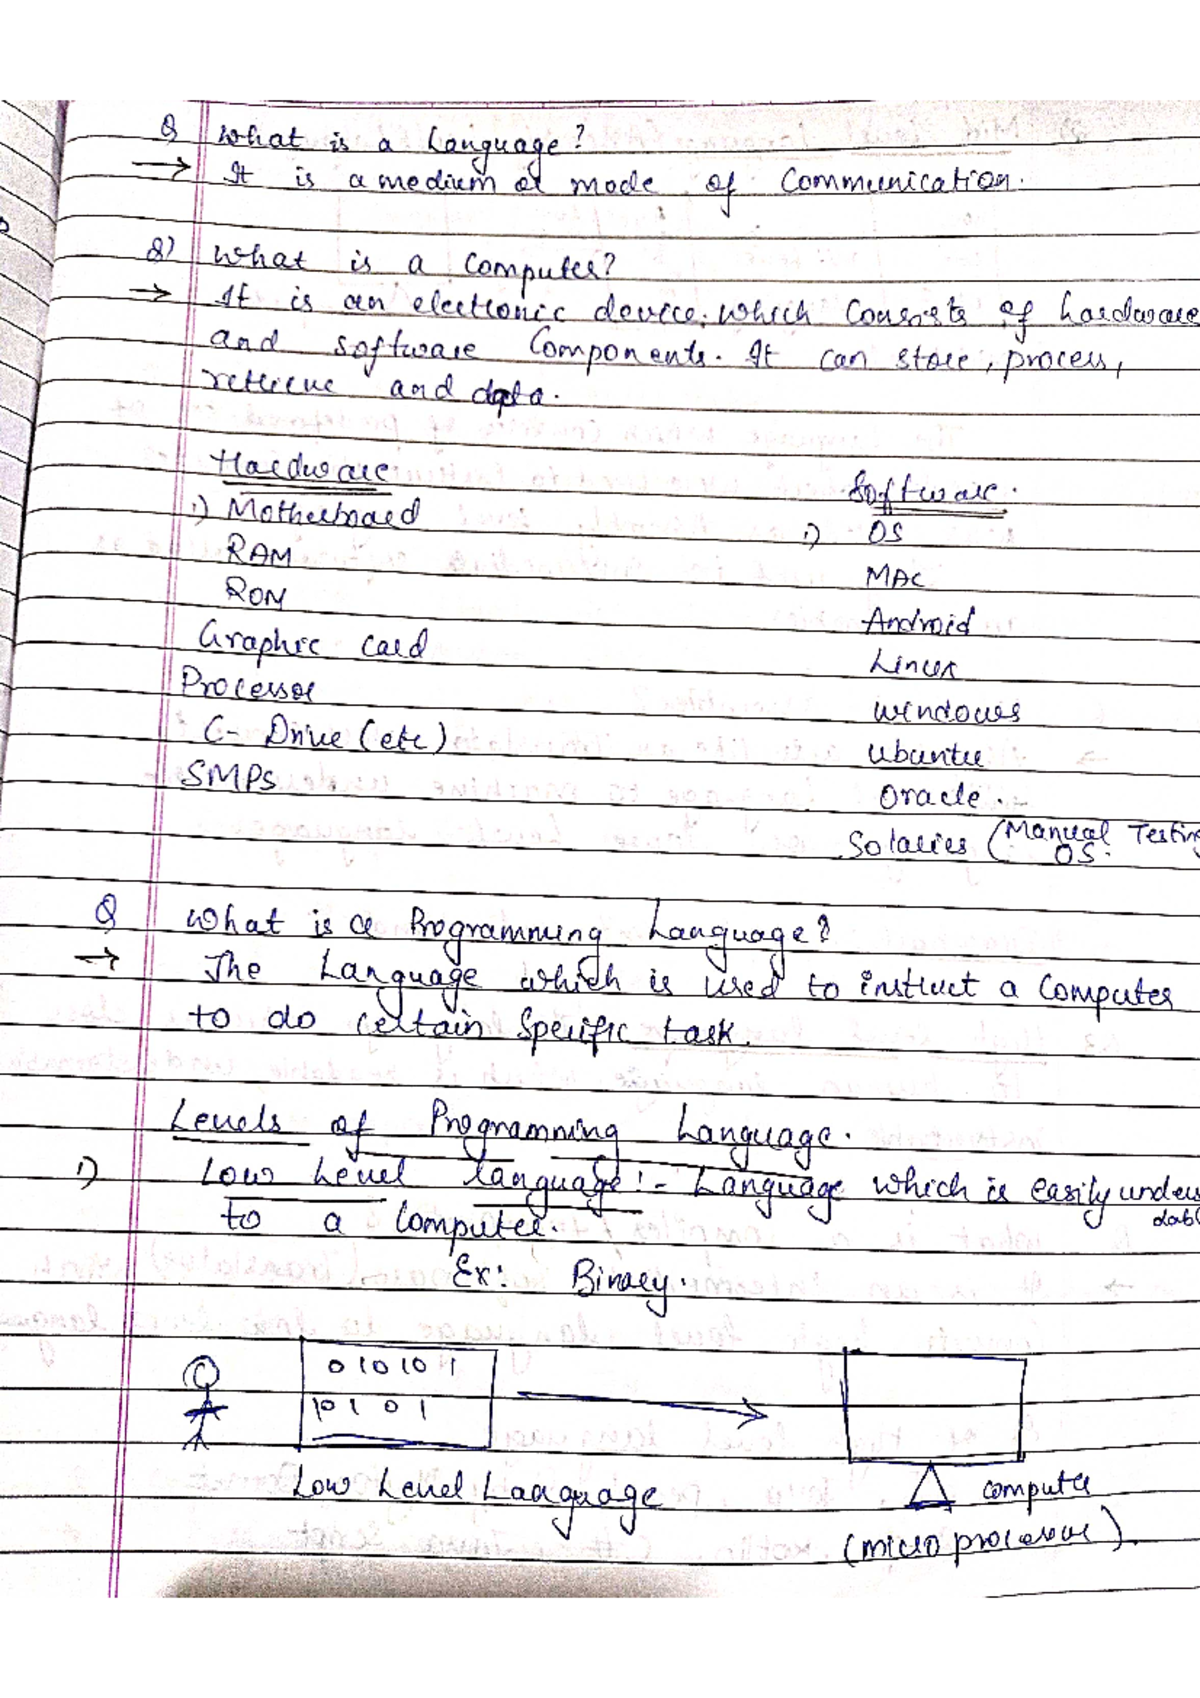 Q What is a Language?
→ It is a medium or mode of Communication.
Q) What is a Computer?
→ It is an electronic device. which Consists of hardware
and software Components. It can store, process,
retrieve and data.
Hardware
Software.
1) Motherboard
1) OS
RAM
MAC
ROM
Android
Graphic card
Linux
Processor
Windows
C- Drive (etc)
Ubuntu
SMPS
Oracle.
Solaries (Manual Testing
OS.
Q What is a Programming Language?
→ The Language which is used to instruct a Computer
to do certain specific task.
Levels of Programming Language.
1) Low Level language:- Language which is easily under
dabl
to a Computer.
Ex: Binary.
010101
10101
Low Level Language
computer
(micro processor).